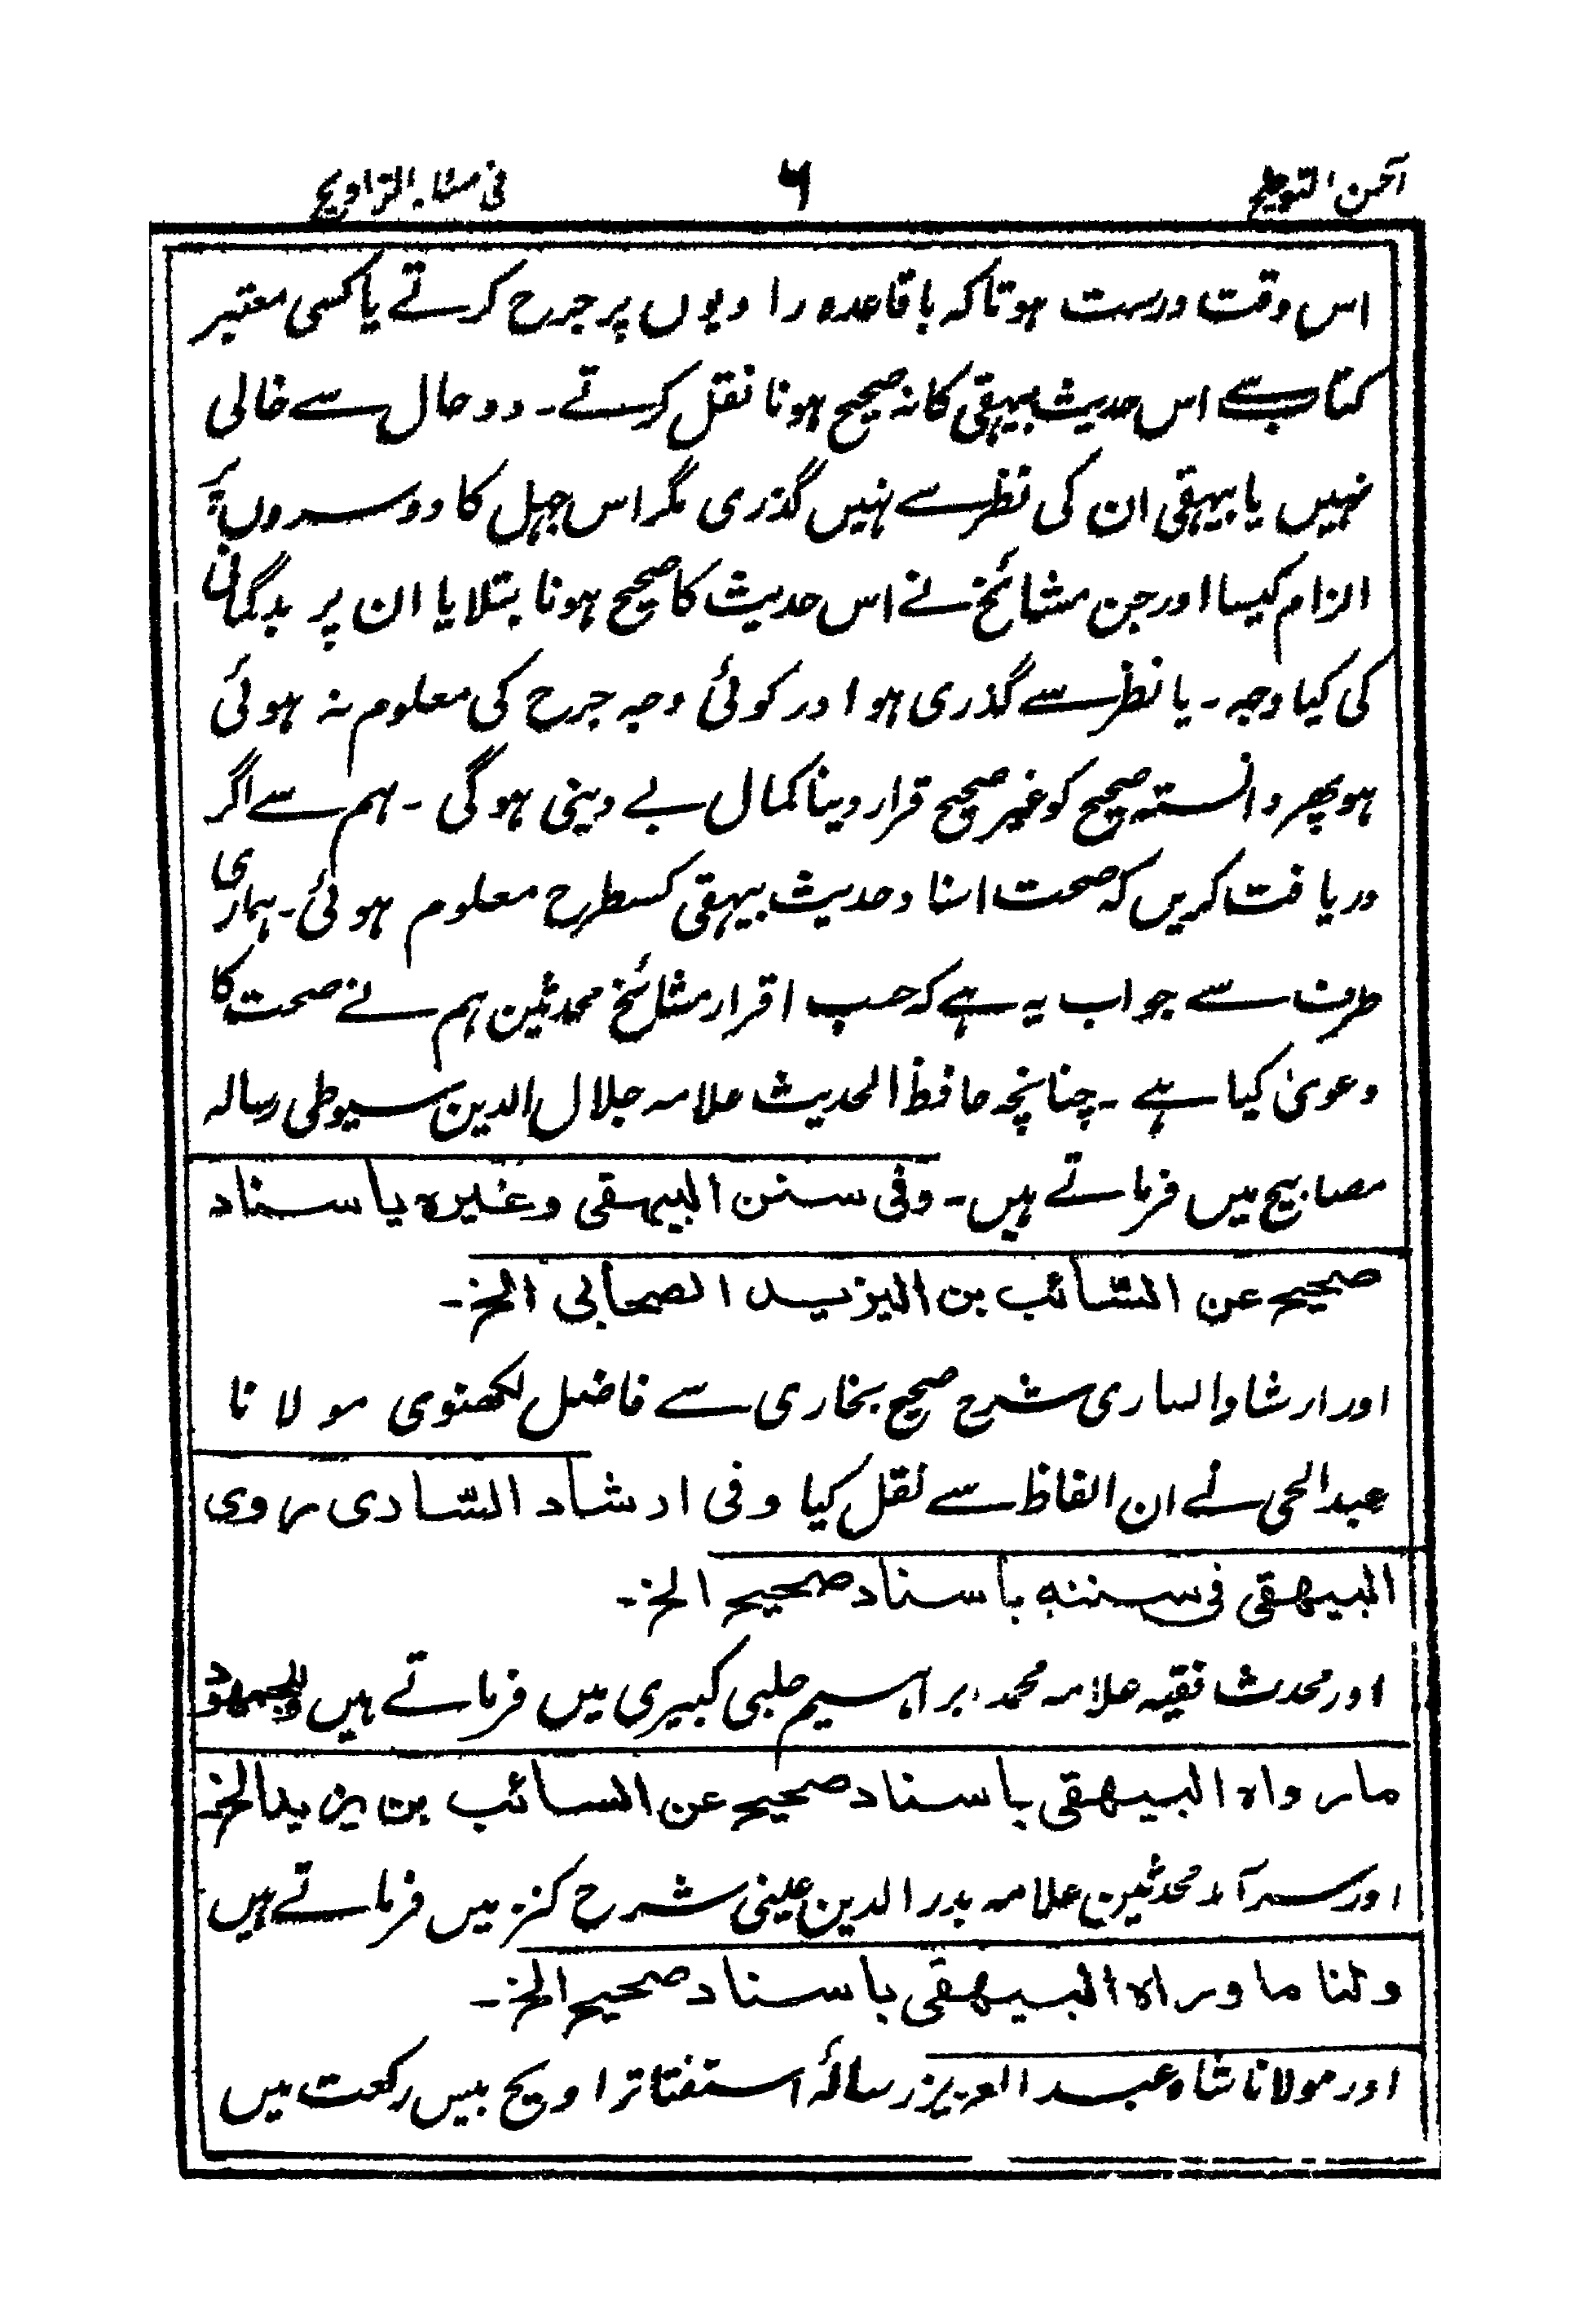 احسن التوضیح ۶ فی مسئلہ التراویح
اس وقت درست ہوتا کہ باقاعدہ راویوں پر جرح کرتے یا کسی معتبر
کتاب سے اس حدیث بیہقی کا نہ صحیح ہونا نقل کرتے۔ دو حال سے خالی
نہیں یا بیہقی ان کی نظر سے نہیں گذری مگر اس جہل کا دوسروں پر
الزام کیسا اور جن مشائخ نے اس حدیث کا صحیح ہونا بتلایا ان پر بدگمانی
کی کیا وجہ۔ یا نظر سے گذری ہو اور کوئی وجہ جرح کی معلوم نہ ہوئی
ہو پھر دانستہ صحیح کو غیر صحیح قرار دینا کمال بے دینی ہوگی۔ ہم سے اگر
دریافت کریں کہ صحت اسناد حدیث بیہقی کسطرح معلوم ہوئی۔ ہماری
طرف سے جواب یہ ہے کہ حسب اقرار مشائخ محدثین ہم نے صحت کا
دعویٰ کیا ہے۔ چنانچہ حافظ الحدیث علامہ جلال الدین سیوطی رسالہ
مصابیح میں فرماتے ہیں۔ وفی سنن البیہقی وغیرہ باسناد
صحیح عن السّائب بن الیزید الصحابی الخ۔
اور ارشاد الساری شرح صحیح بخاری سے فاضل لکھنوی مولانا
عبدالحی نے ان الفاظ سے نقل کیا وفی ارشاد السّاری روی
البیهقی فی سننه باسناد صحیح الخ۔
اور محدث فقیہ علامہ محمد ابراہیم حلبی کبیری میں فرماتے ہیں وللجمهور
ما رواه البیهقی باسناد صحیح عن السائب بن یزید الخ
اور سرآمد محدثین علامہ بدر الدین عینی شرح کنز میں فرماتے ہیں
ولنا ما وراه البیهقی باسناد صحیح الخ۔
اور مولانا شاہ عبد العزیز رسالۂ استفتا تراویح بیس رکعت میں